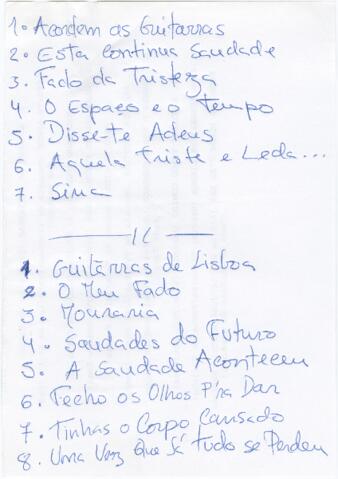 1. Acordem as Guitarras
2. Esta contínua Saudade
3. Fado da Tristeza
4. O Espaço e o Tempo
5. Disse-te Adeus
6. Aquela Triste e Leda...
7. Sina
1. Guitarras de Lisboa
2. O Meu Fado
3. Mouraria
4. Saudades do Futuro
5. A Saudade Aconteceu
6. Fecho os Olhos P'ra Dar
7. Tinhas o Corpo Cansado
8. Uma Vez Que Já Tudo se Perdeu